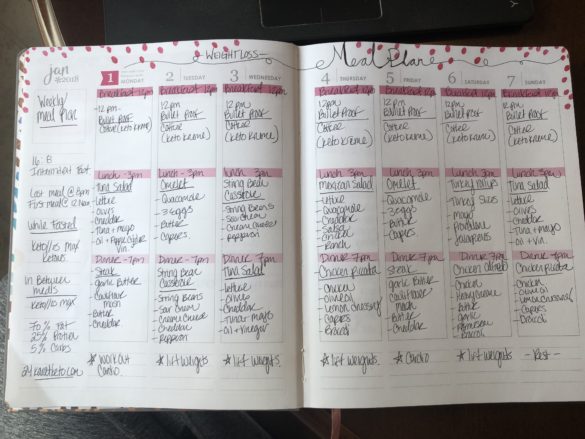 WEIGHTLOSS
Meal Plan
jan
1 MONDAY
2 TUESDAY
3 WEDNESDAY
4 THURSDAY
5 FRIDAY
6 SATURDAY
7 SUNDAY
Weekly
meal Plan
16:8
Intermittent Fast
Last meal @ 8pm
First meal @ 12 Noon
While Fasted
Keto//os max
Ketones
In Between
meals
70% Fat
25% Protien
5% Carbs
Breakfast 12pm
12pm
Bullet Proof
Coffee
(keto kreme)
Lunch - 3pm
Tuna Salad
Lettuce
Olives
Cheddar
Tuna + mayo
Oil + Apple Cider
Vin
Dinner - 7pm
Steak
garlic Butter
Cauliflower
Mash
Butter
Cheddar
* Workout
Cardio
Breakfast 12pm
12pm
Bullet Proof
Coffee
(keto kreme)
Lunch - 3pm
Omelet
Guacamole
3 eggs
Butter
Capers
Dinner - 7pm
String Bean
Casserole
String Beans
Sour Cream
Creame Cheese
Cheddar
Pepperoni
* lift weights
Breakfast 12pm
12pm
Bullet Proof
Coffee
(keto kreme)
Lunch 3pm
String Bean
Casserole
String Beans
Sour Cream
Cream Cheese
Pepperoni
Dinner 7pm
Tuna Salad
lettuce
olives
Cheddar
Tuna + mayo
Oil + Vinegar
* lift weights
Breakfast 12pm
12pm
Bullet Proof
Coffee
(keto kreme)
Lunch 3pm
Mexican Salad
Lettuce
Guacamole
Cheddar
Salsa
Chicken
Ranch
Dinner 7pm
Chicken Picatta
Chicken
Olive oil
Lemon
Capers
Brocoli
* lift weights
Breakfast 12pm
12pm
Bullet Proof
Coffee
(keto kreme)
Lunch 3pm
Omelet
Guacamole
3 eggs
Butter
Capers
Dinner 7pm
Steak
garlic Butter
Cauliflower
mash
Butter
Cheddar
* Cardio
Breakfast 12pm
12pm
Bullet Proof
Coffee
(keto kreme)
Lunch 3pm
Turkey Rollups
Turkey Slices
Mayo
Provolone
Jalapenos
Dinner 7pm
Chicken Alfredo
Chicken
Heavy Creame
Butter
garlic
Parmesan
Brocoli
* lift weights
Breakfast 12pm
12pm
Bullet Proof
Coffee
(keto kreme)
Lunch 3pm
Tuna Salad
lettuce
Olives
Cheddar
Tuna + mayo
Oil + Vin
Dinner 7pm
Chicken Picatta
Chicken
Olive oil
Lemon
Capers
Brocoli
- Rest -